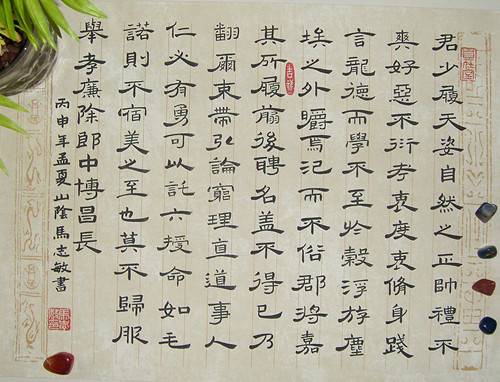 君少履天姿自然之正帥禮不
爽好惡不衍考衷度衷脩身踐
言龍德而學不至於穀浮游塵
埃之外皭焉氾而不俗郡將嘉
其所履前後聘名蓋不得已乃
翻爾束帶弘論窮理直道事人
仁必有勇可以託六授命如毛
諾則不宿美之至也莫不歸服
舉孝廉除郎中博昌長
丙申年孟夏山陰馬志敏書